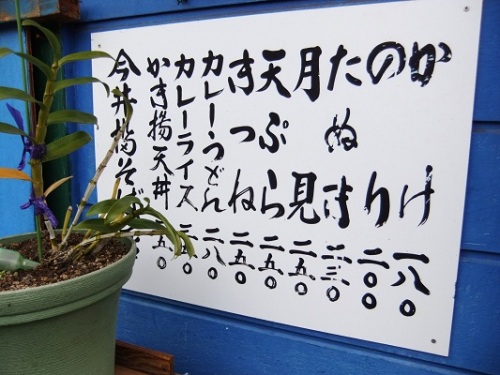 かけ 一八〇
のり 二〇〇
たぬき 二三〇
月見 二五〇
天ぷら 二五〇
きつね 二五〇
カレーうどん 二八〇
カレーライス
かき揚天丼
今井橋そば